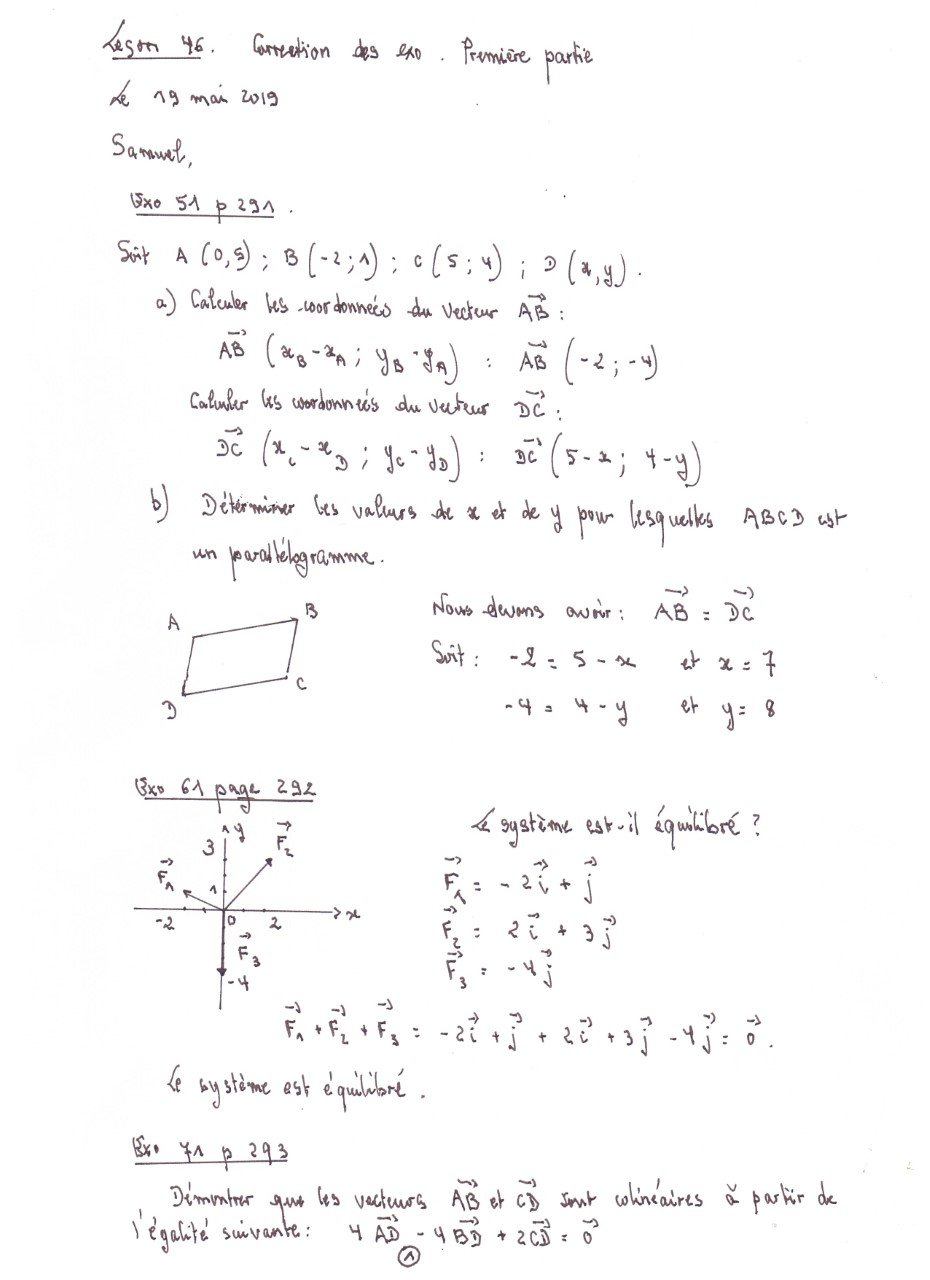 Leçon 46. Correction des exo. Première partie
Le 19 mai 2019
Samuel,
Exo 51 p 291.
Soit A (0,5) ; B (-2 ; 1) ; C (5 ; 4) ; D (x, y).
a) Calculer les coordonnées du vecteur AB⃗ :
AB⃗ (x_B - x_A ; y_B - y_A) : AB⃗ (-2 ; -4)
Calculer les coordonnées du vecteur DC⃗ :
DC⃗ (x_C - x_D ; y_C - y_D) : DC⃗ (5 - x ; 4 - y)
b) Déterminer les valeurs de x et de y pour lesquelles ABCD est
un parallélogramme.
A B
D C
Nous devons avoir : AB⃗ = DC⃗
Soit : -2 = 5 - x et x = 7
-4 = 4 - y et y = 8
Exo 61 page 292
y
3 F₂⃗
F₁⃗ 1
-2 0 2 x
F₃⃗
-4
Le système est-il équilibré ?
F₁⃗ = -2i⃗ + j⃗
F₂⃗ = 2i⃗ + 3j⃗
F₃⃗ = -4j⃗
F₁⃗ + F₂⃗ + F₃⃗ = -2i⃗ + j⃗ + 2i⃗ + 3j⃗ - 4j⃗ = 0⃗.
Le système est équilibré.
Exo 71 p 293
Démontrer que les vecteurs AB⃗ et CD⃗ sont colinéaires à partir de
l'égalité suivante : 4 AD⃗ - 4 BD⃗ + 2 CD⃗ = 0⃗
①